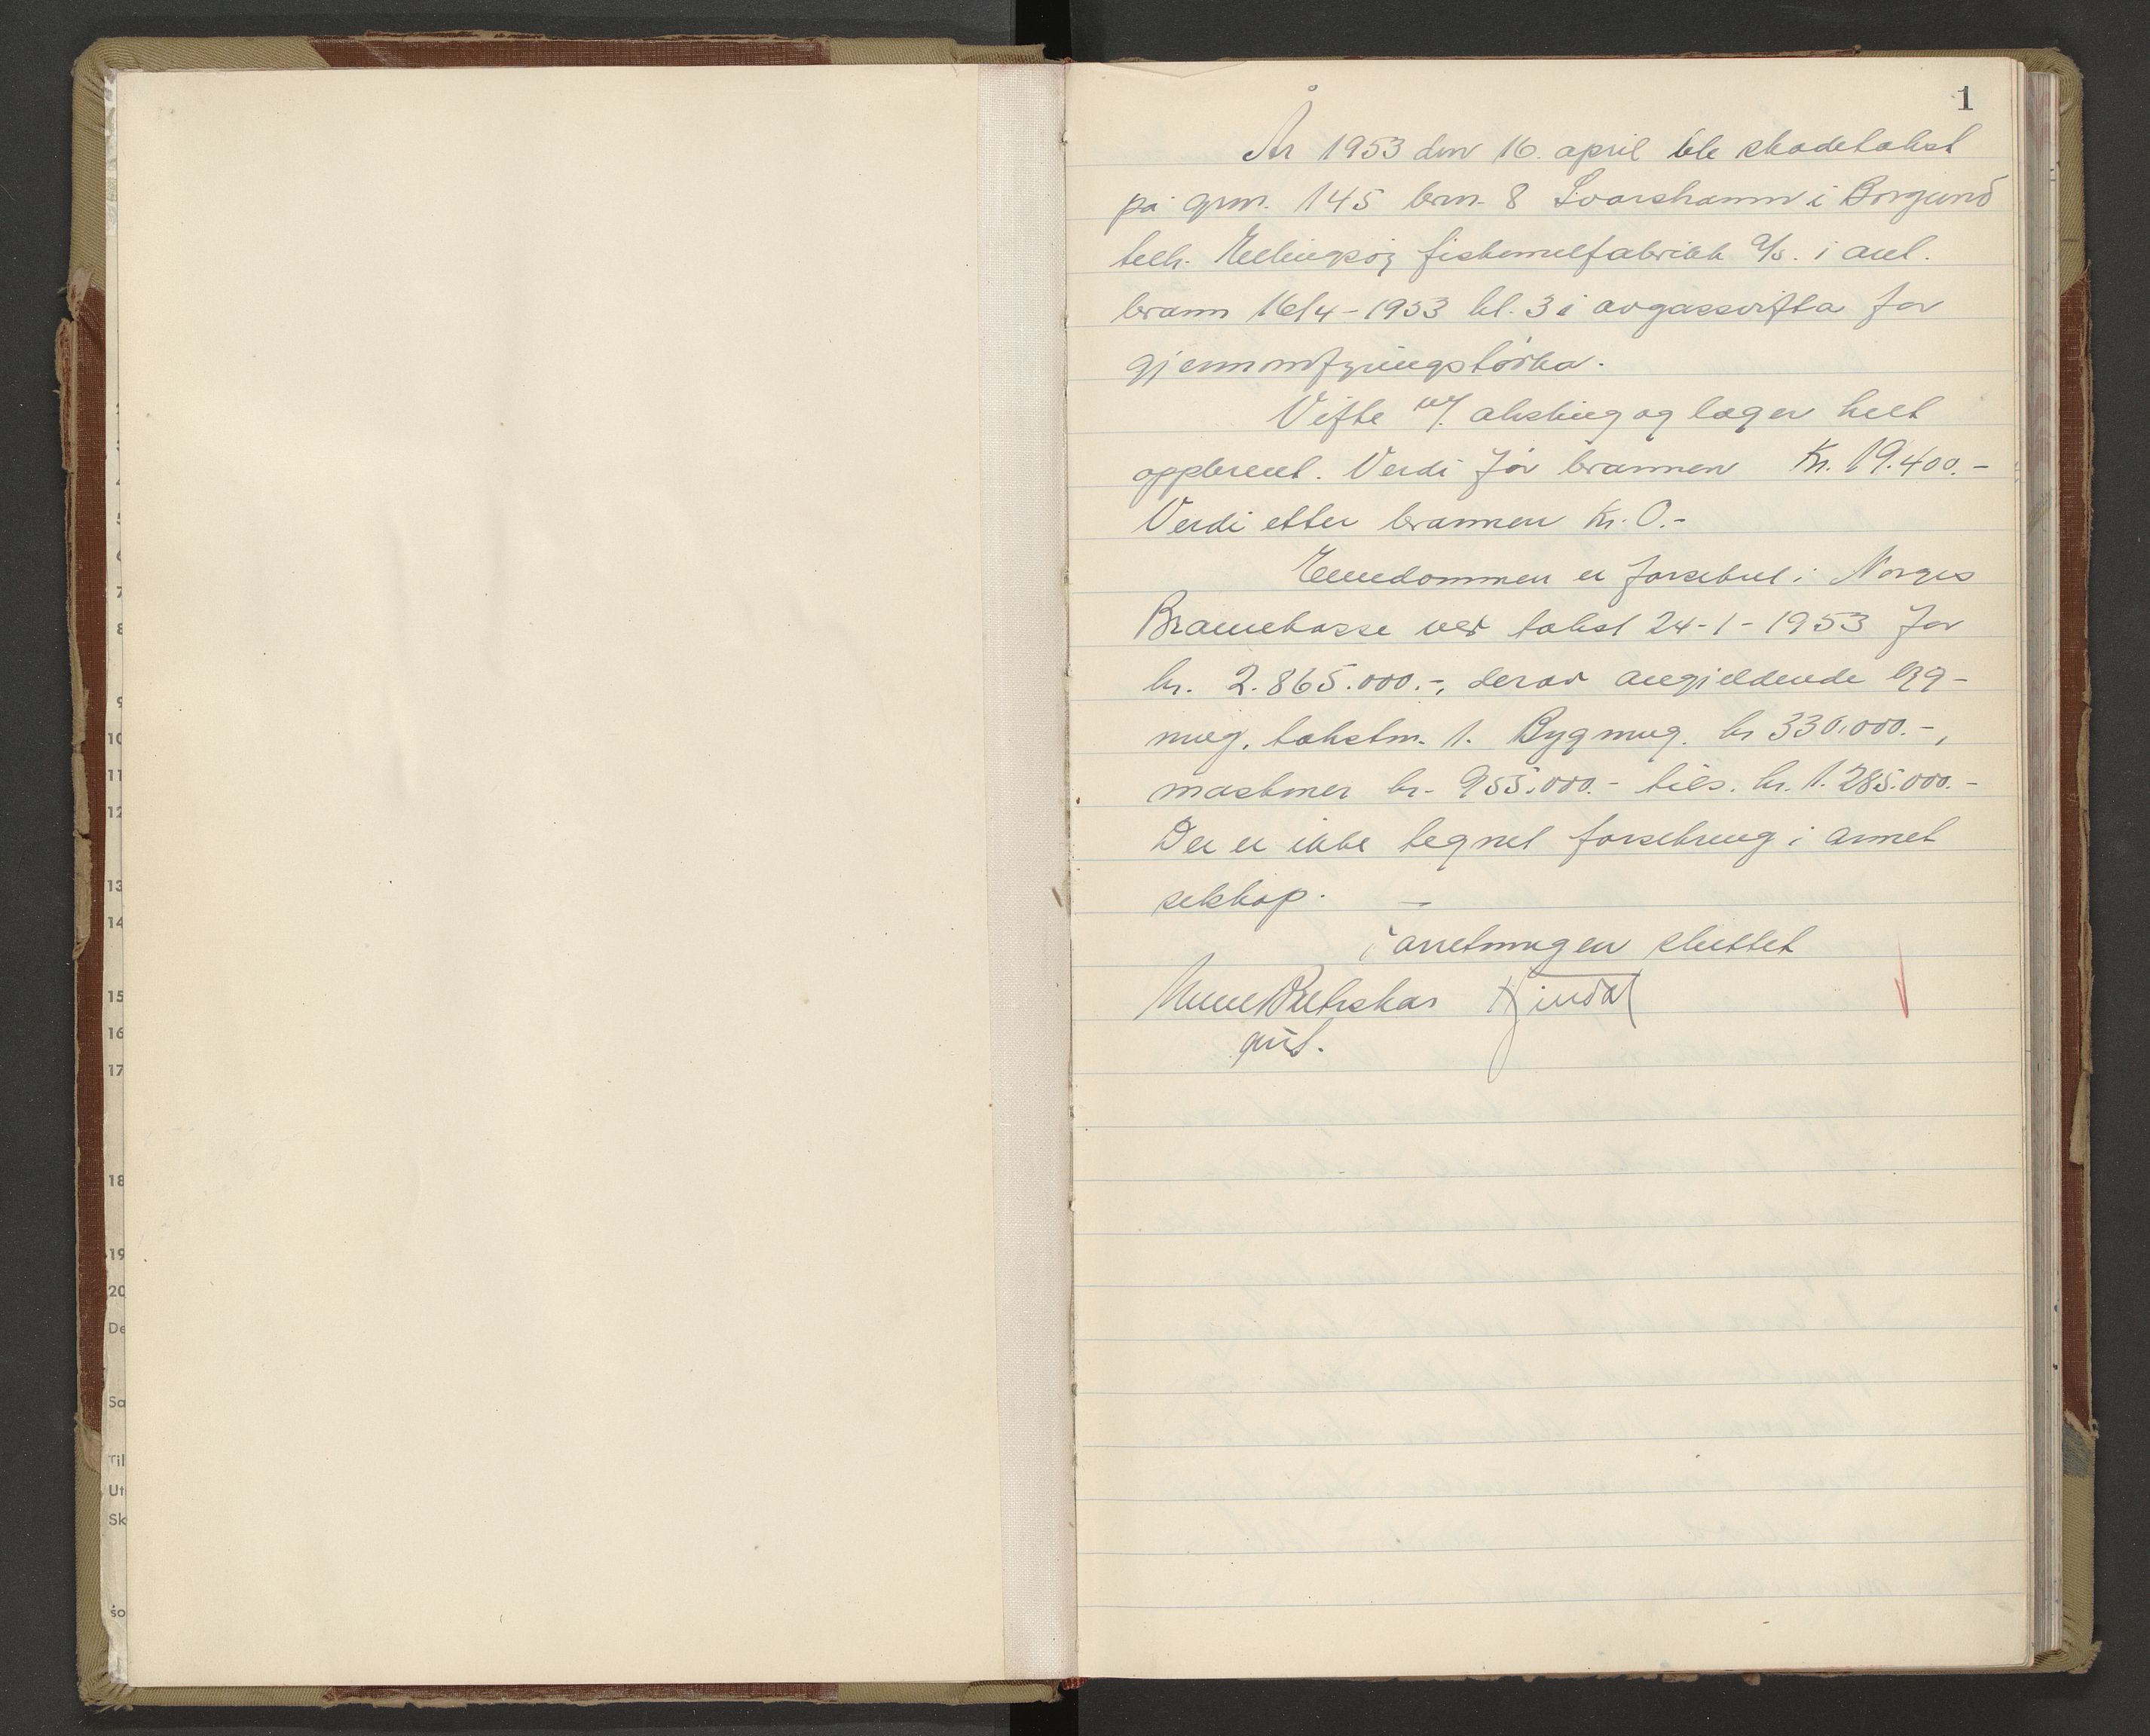 1
År 1953 den 16. april ble skadetakst
på gnr. 145 brn. 8 Svarshamn i Borgund
telh. Ellingsøy fiskemelfabrikk A/s. i anl.
brann 16/4-1953 kl. 3 i avgassvifta for
gjennomfyringstørka.
Vifte m/. aksling og lager helt
oppbrent. Verdi før brannen Kr. 19.400.-
Verdi etter brannen Kr. 0.-
Eiendommen er forsikret i Norges
Brannkasse ved takst 24-1-1953 for
kr. 2.865.000.-, derav angjeldende byg-
ning, takstnr. 1. Bygning. kr 330.000.-,
maskiner kr. 955.000.- tils. kr. 1.285.000.-
Der er ikke tegnet forsikring i annet
selskap. -
Forretningen sluttet
Kjindal